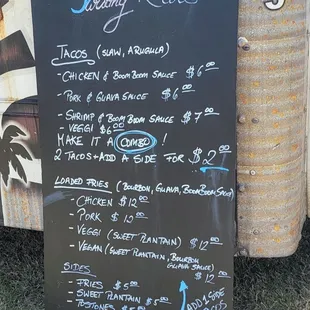 TACOS (SLAW, ARUGULA)
- CHICKEN & BOOM BOOM SAUCE $6.00
- PORK & GUAVA SAUCE $6.00
- SHRIMP & BOOM BOOM SAUCE $7.00
- VEGGI $6.00
MAKE IT A COMBO!
2 TACOS + ADD A SIDE FOR $2.00
LOADED FRIES (BOURBON, GUAVA, BOOM BOOM SAUCE)
- CHICKEN $12.00
- PORK $12.00
- VEGGI (SWEET PLANTAIN) $12.00
- VEGAN (SWEET PLANTAIN, BOURBON
GUAVA SAUCE) $12.00
SIDES
- FRIES $5.00
- SWEET PLANTAIN $5.00
- TOSTONES $5.00
ADD 1 SIDE